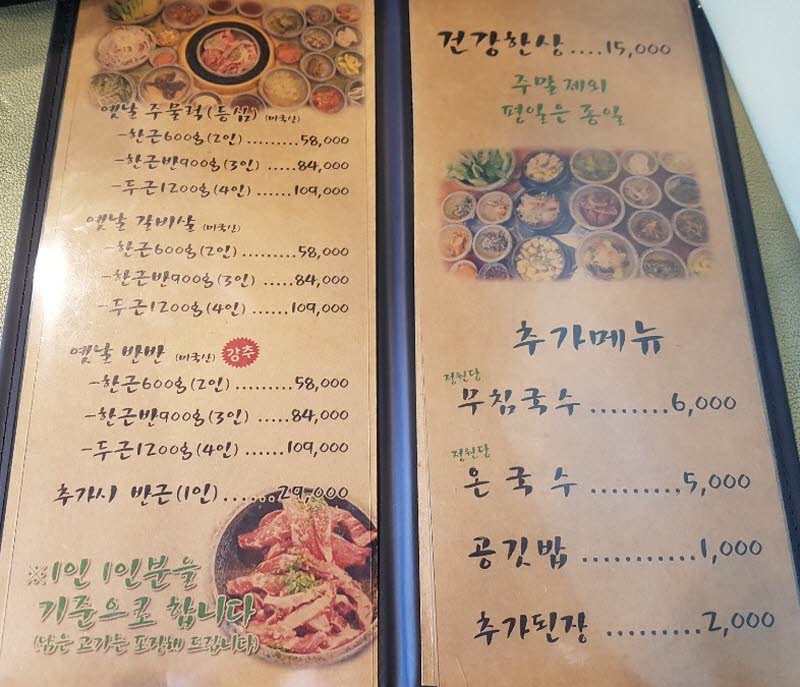 옛날 주물럭(등심) (미국산)
-한근600g(2인).........58,000
-한근반900g(3인)......84,000
-두근1200g(4인)......109,000
옛날 갈비살 (미국산)
-한근600g(2인).........58,000
-한근반900g(3인)......84,000
-두근1200g(4인)......109,000
옛날 반반 (미국산) 강추
-한근600g(2인).........58,000
-한근반900g(3인).....84,000
-두근1200g(4인)......109,000
추가시 반근(1인).......29,000
※1인 1인분을
기준으로 합니다
(남은 고기는 포장해 드립니다)
건강한상....15,000
주말제외
평일은 종일
추가메뉴
정원당
무침국수.........6,000
정원당
온국수..........5,000
공깃밥............1,000
추가된장..........2,000